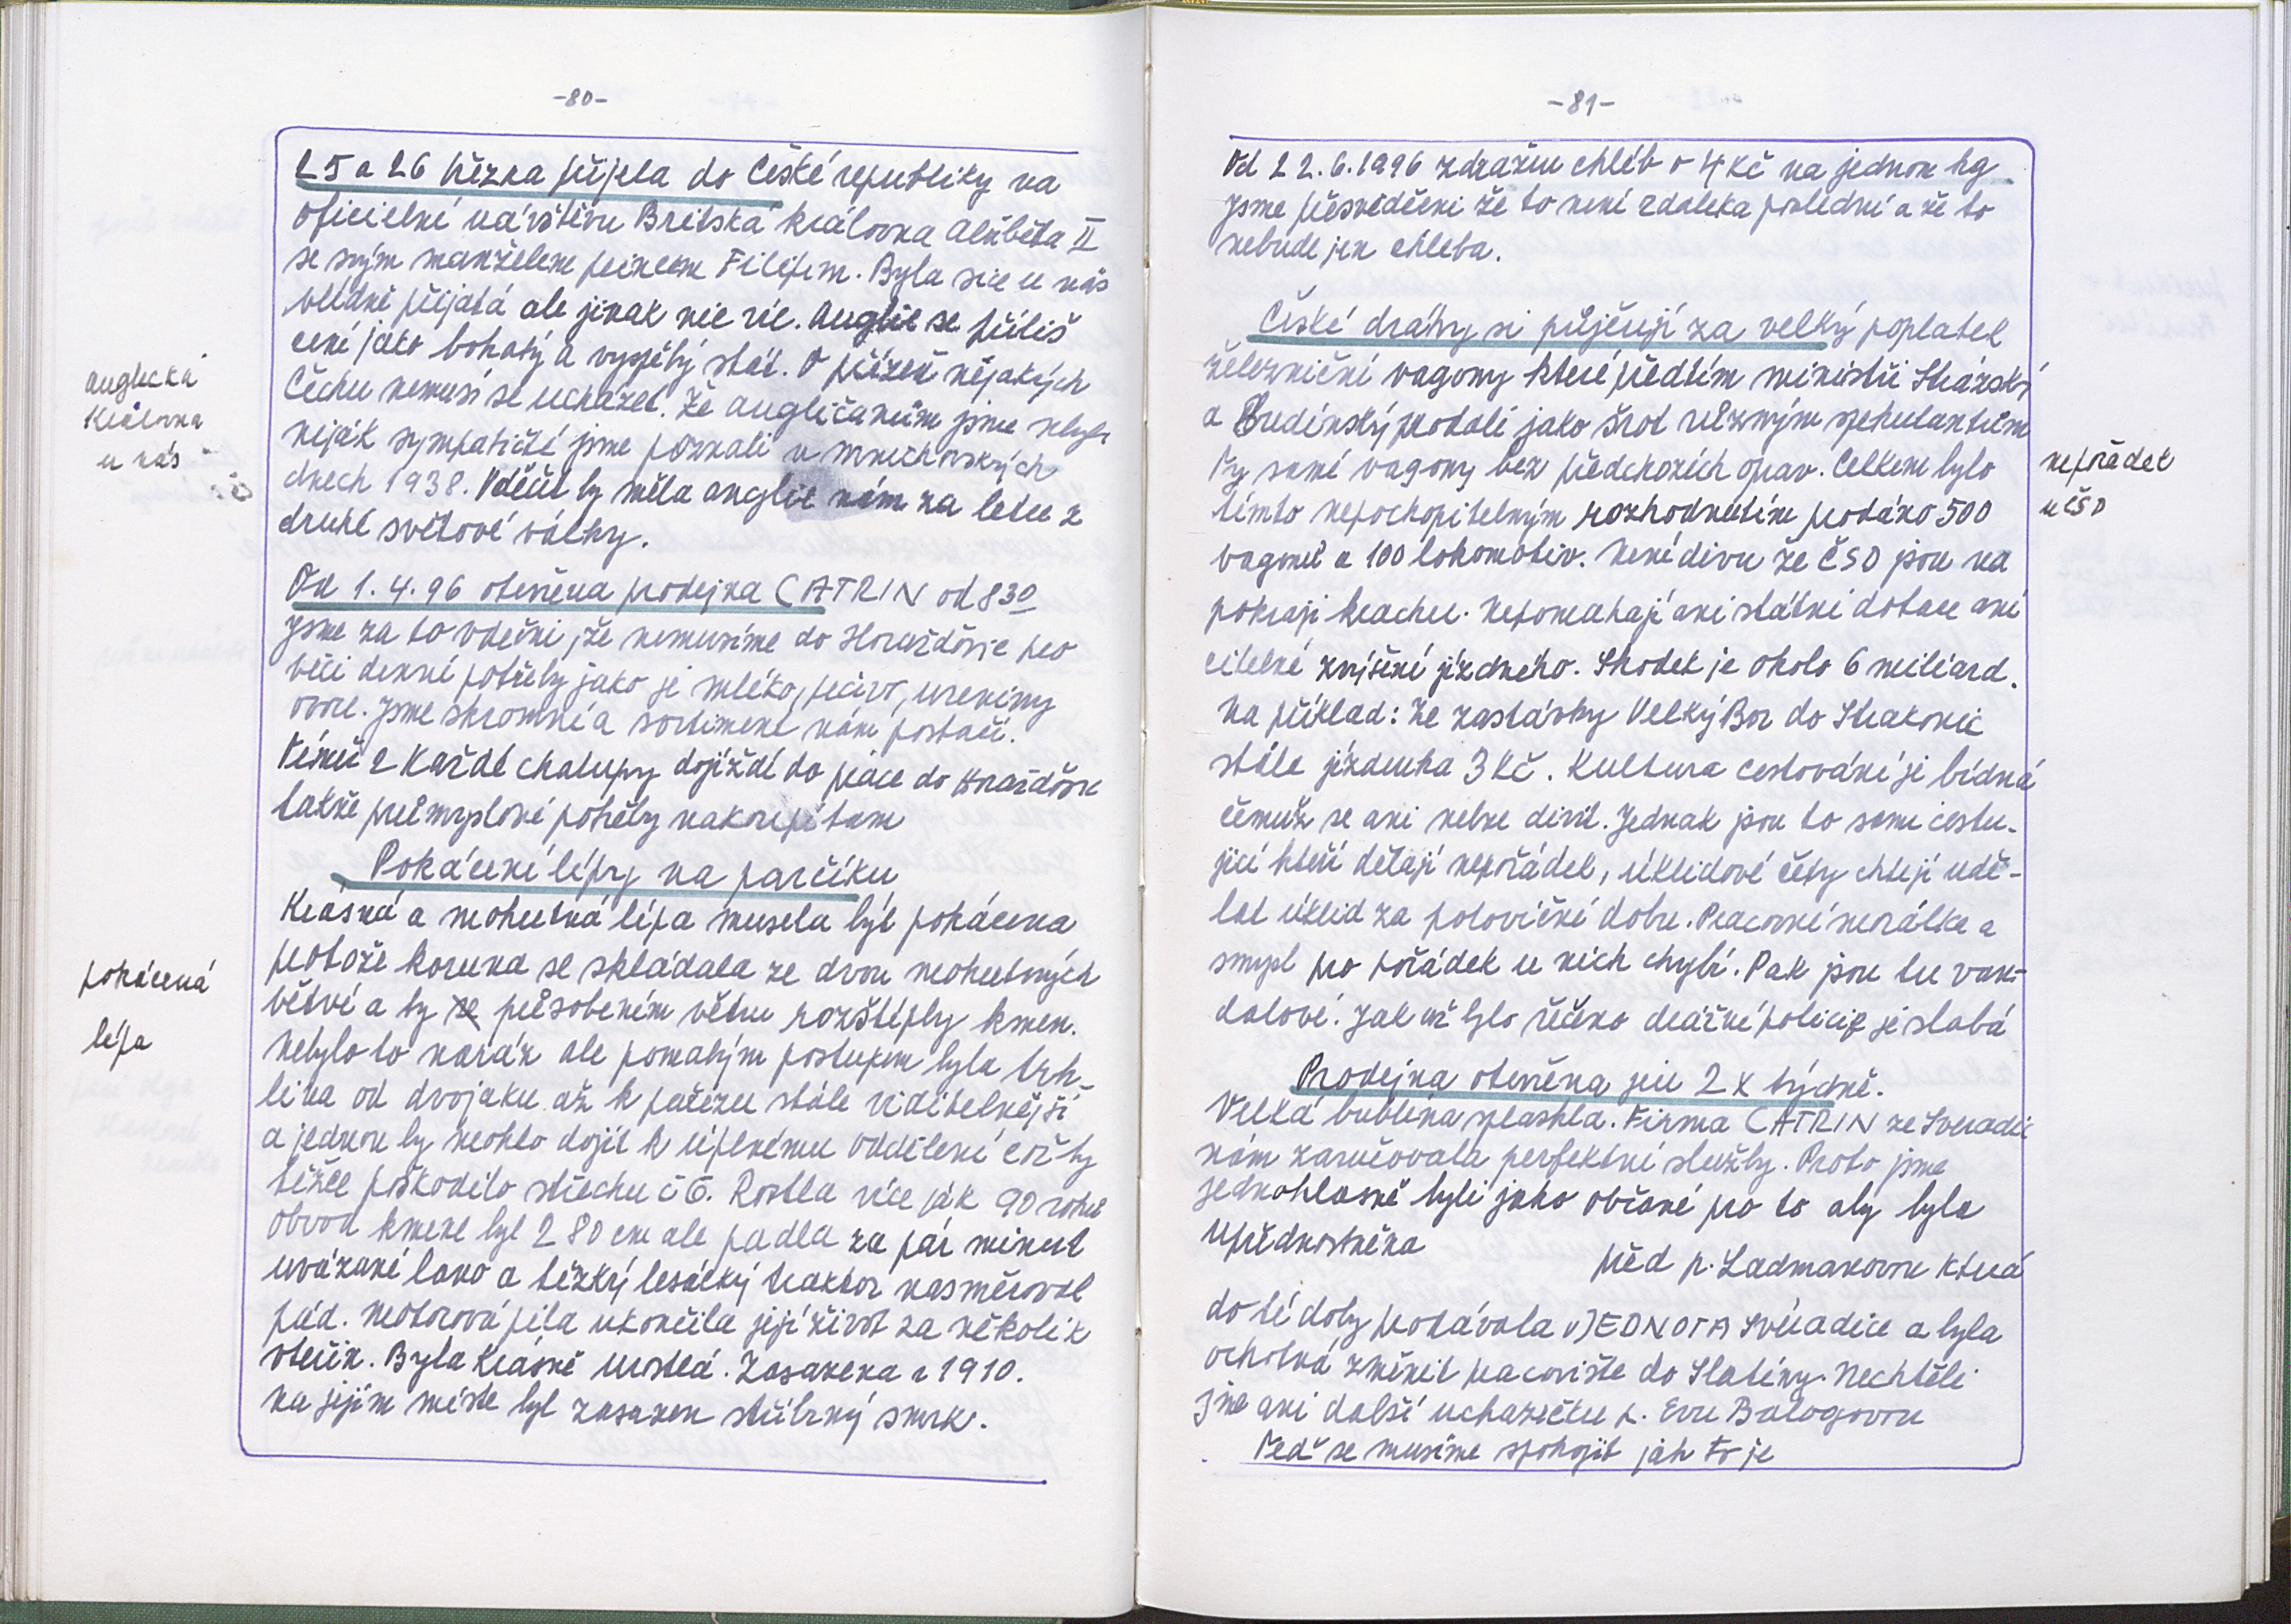 -80-
25 a 26 března přijela do České republiky na
oficielní návštěvu Britská královna Alžběta II
se svým manželem princem Filipem. Byla sice u nás
vlídně přijatá ale jinak nic víc. Anglie se příliš
cení jako bohatý a vyspělý stát. O přízeň nějakých
Čechu nemusí se ucházet. Že angličanům jsme nebyli
nijak sympatičtí jsme poznali v mnichovských
dnech 1938. Vděčit by měla anglie nám za letce z
druhé světové války.
anglická
Královna
u nás
Od 1.4.96 otevřena prodejna CATRIN od 830
Jsme za to vdečni, že nemusíme do Horažďovic pro
věci denní potřeby jako je mléko, pečivo, uzeniny
ovoce. Jsme skromní a sortiment nám postačí.
Téměř z každé chalupy dojíždí do práce do Horažďovic
takže průmyslové potřeby nakoupí tam
Pokácení lípy na parčíku
Krásná a mohutná lípa musela být pokácena
protože koruna se skládala ze dvou mohutných
větví a ty se působením větru rozštíply kmen.
Nebylo to naráz ale pomalým postupem byla trh-
lina od dvojaku až k pařezu stále viditelnější
a jednou by mohlo dojít k úplnému oddělení což by
těžce poškodilo střechu č 6. Rostla více jak 90 roků
obvod kmene byl 280 cm ale padla za pár minut
uvázané lano a těžký lesácký traktor nasměroval
pád. Motorová pila ukončila její život za několik
vteřin. Byla krásně urostlá. Zasazena r 1910.
na jejím míste byl zasazen stříbrný smrk.
pokácená
lípa
-81-
Od 22.6.1996 zdražen chléb o 4 Kč na jednom kg
Jsme přesvědčeni že to není zdaleka poslední a že to
nebude jen chleba.
České dráhy si půjčují za velký poplatek
železniční vagony které předtím ministři Stráský
a Budínský prodali jako šrot různým spekulantům
Ty samé vagony bez předchozích oprav. Celkem bylo
tímto nepochopitelným rozhodnutím prodáno 500
vagonů a 100 lokomotiv. Není divu že ČSD jsou na
pokraji krachu. Nepomahají ani státní dotace ani
citelné zvýšení jízdného. Shodek je okolo 6 miliard.
Na příklad: Ze zastávky Velký Bor do Strakonic
stála jízdenka 3 Kč. Kultura cestování je bídná
čemuž se ani nelze divit. Jednak jsou to sami cestu-
jící kteří dělají nepořádek, úklidové čety chtějí udě-
lat úklid za poloviční dobu. Pracovní morálka a
smysl pro pořádek u nich chybí. Pak jsou tu van-
dalové. Jak už bylo řečeno drážní policie je slabá
nepořádek
u ČSD
Prodejna otevřena jen 2 x týdně.
Velká bublina splaskla. Firma CATRIN ze Svéradic
nám zaručovala perfektní služby. Proto jsme
jednohlasně byli jako občané pro to aby byla
Upřednostněna
před p. Ladmanovou která
do té doby prodávala v JEDNOTA Svéradice a byla
ochotná změnit pracoviště do Slatiny. Nechtěli
jme ani další uchazečku p. Evu Balogovou
Teď se musíme spokojit jak to je